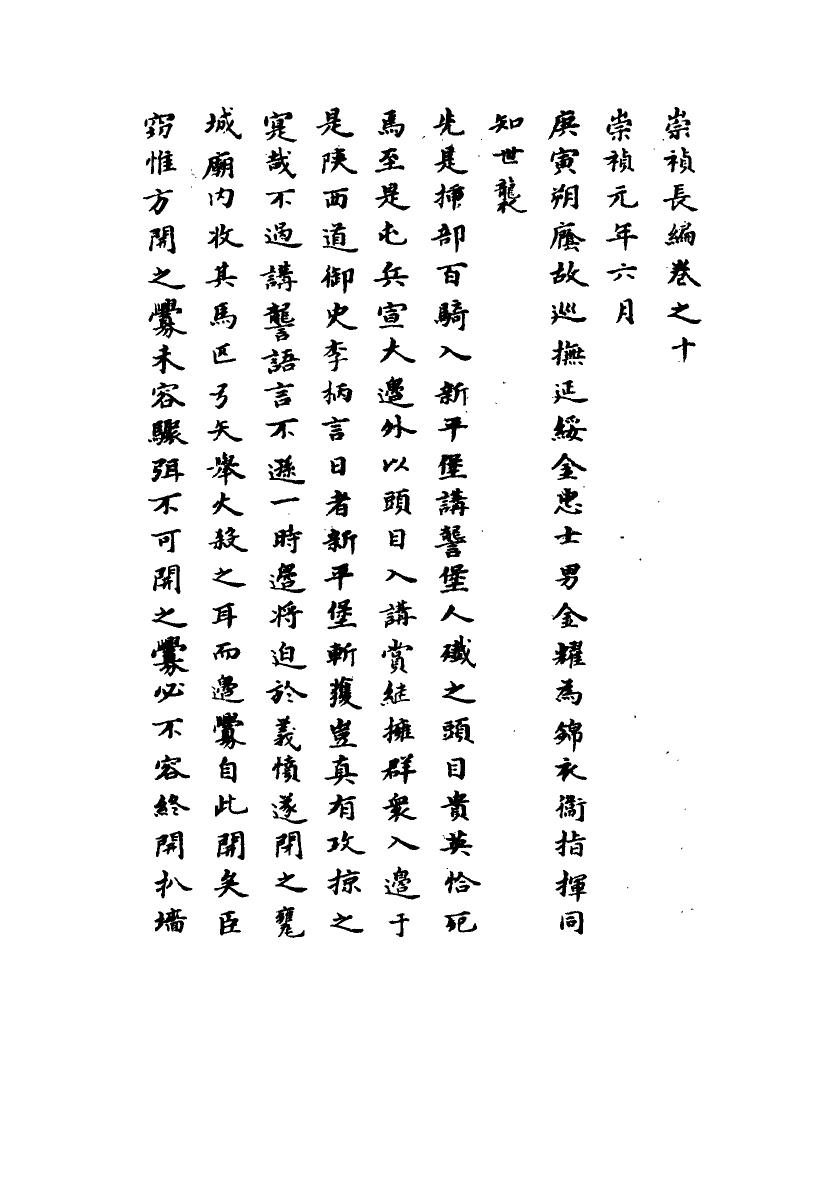 崇禎長編卷之十
崇禎元年六月
庚寅朔廕故巡撫延綏金忠士男金耀為錦衣衞指揮同
知世襲
先是揷部百騎入新平堡講讋堡人殱之頭目貴英恰死
馬至是屯兵宣大邊外以頭目入講賞継擁群衆入邊于
是陜西道御史李柄言日者新平堡斬獲豈真有攻掠之
寔哉不過講讋語言不遜一時邊将迫於義憤遂閉之甕
城廟内收其馬匹弓矢舉火殺之耳而邊釁自此開矣臣
竊惟方開之釁未容驟弭不可開之釁必不容終開扒墻